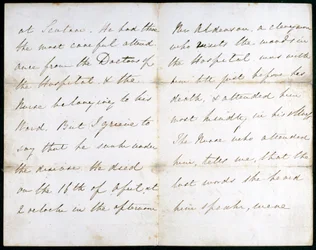 at Scutari. He had there
the most careful attend
ance from the Doctors of
the Hospital, & the
Nurse belonging to his
Ward. But I grieve to
say that he sunk under
the disease. He died
on the 16th of April, at
2 o'clock in the afternoon
Mr Alderson, a clergyman
who visits the wards in
the Hospital was with
him little just before his
death, & attended him
most kindly, in his
The Nurse who attended
him, tells me, that the
last words she heard
him speak, were